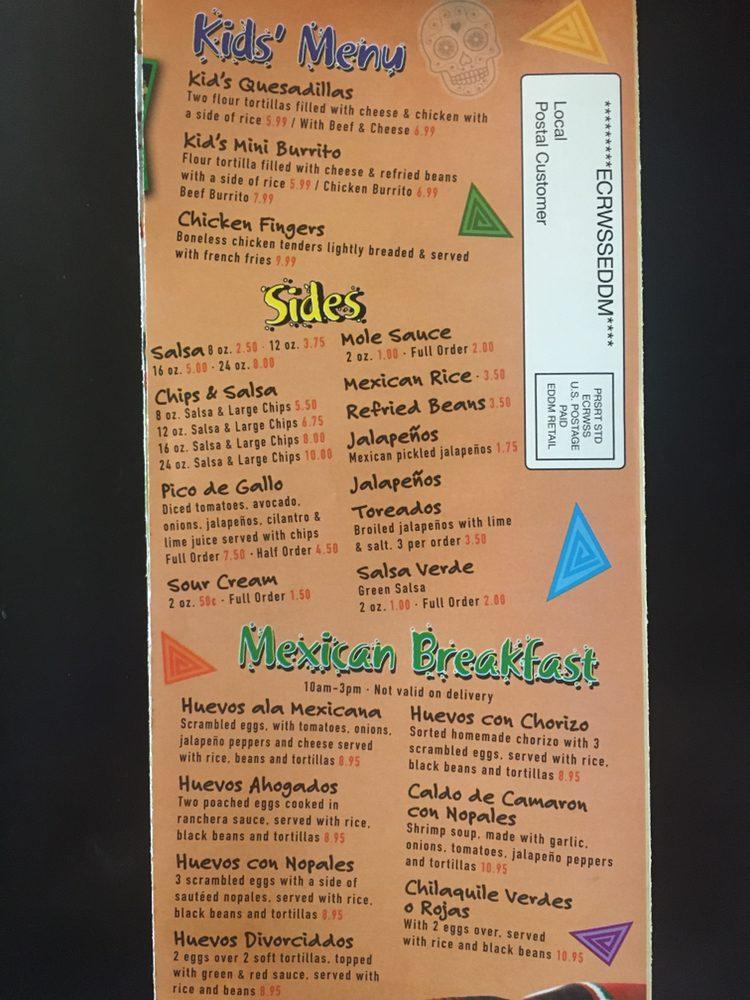 Kids' Menu
Kid's Quesadillas
Two flour tortillas filled with cheese & chicken with
a side of rice 5.99 / With Beef & Cheese 6.99
Kid's Mini Burrito
Flour tortilla filled with cheese & refried beans
with a side of rice 5.99 / Chicken Burrito 6.99
Beef Burrito 7.99
Chicken Fingers
Boneless chicken tenders lightly breaded & served
with french fries 9.99
Sides
Salsa 8 oz. 2.50 · 12 oz. 3.75
16 oz. 5.00 · 24 oz. 8.00
Chips & Salsa
8 oz. Salsa & Large Chips 5.50
12 oz. Salsa & Large Chips 6.75
16 oz. Salsa & Large Chips 8.00
24 oz. Salsa & Large Chips 10.00
Pico de Gallo
Diced tomatoes, avocado,
onions, jalapeños, cilantro &
lime juice served with chips
Full Order 7.50 · Half Order 4.50
Sour Cream
2 oz. 50¢ · Full Order 1.50
Mole Sauce
2 oz. 1.00 · Full Order 2.00
Mexican Rice · 3.50
Refried Beans 3.50
Jalapeños
Mexican pickled jalapeños 1.75
Jalapeños
Toreados
Broiled jalapeños with lime
& salt. 3 per order 3.50
Salsa Verde
Green Salsa
2 oz. 1.00 · Full Order 2.00
Mexican Breakfast
10am-3pm · Not valid on delivery
Huevos ala Mexicana
Scrambled eggs, with tomatoes, onions,
jalapeño peppers and cheese served
with rice, beans and tortillas 8.95
Huevos Ahogados
Two poached eggs cooked in
ranchera sauce, served with rice,
black beans and tortillas 8.95
Huevos con Nopales
3 scrambled eggs with a side of
sautéed nopales, served with rice,
black beans and tortillas 8.95
Huevos Divorciddos
2 eggs over 2 soft tortillas, topped
with green & red sauce, served with
rice and beans 8.95
Huevos con Chorizo
Sorted homemade chorizo with 3
scrambled eggs, served with rice,
black beans and tortillas 8.95
Caldo de Camaron
con Nopales
Shrimp soup, made with garlic,
onions, tomatoes, jalapeño peppers
and tortillas 10.95
Chilaquile Verdes
o Rojas
With 2 eggs over, served
with rice and black beans 10.95
**********ECRWSSEDDM****
Local
Postal Customer
PRSRT STD
ECRWSS
U.S. POSTAGE
PAID
EDDM RETAIL